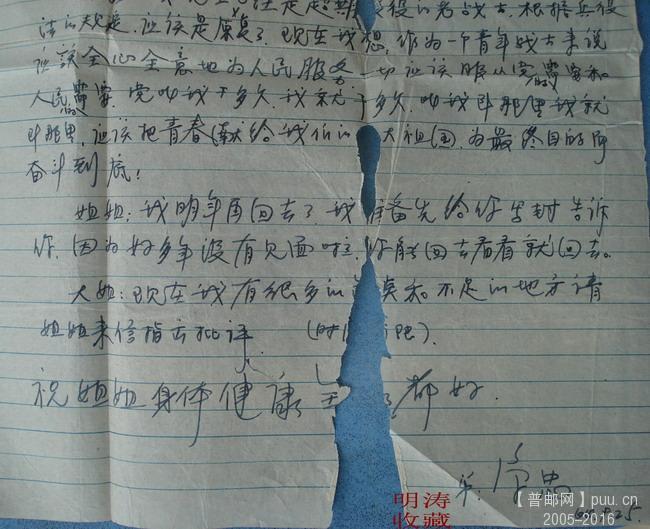 是超期服役的老战士，根据兵役
法的规定，应该是原复了。现在我想，作为一个青年战士来说
应该全心全意地为人民服务，一切应该服从党的需要和
人民的需要，党叫我干多久，我就干多久，叫我到那里我就
到那里，应该把青春献给我们的大祖国，为最终目的而
奋斗到底！
姐姐：我明年再回去了，我准备先给你写封告诉
你，因为好多年没有见面啦，你能回去看看就回去。
大姐：现在我有很多的 和不足的地方请
姐姐来信指出批评 (时 限).
祝姐姐身体健康 都好.
65.9.25
明涛
收藏
【普邮网】puu.cn
2005-2016